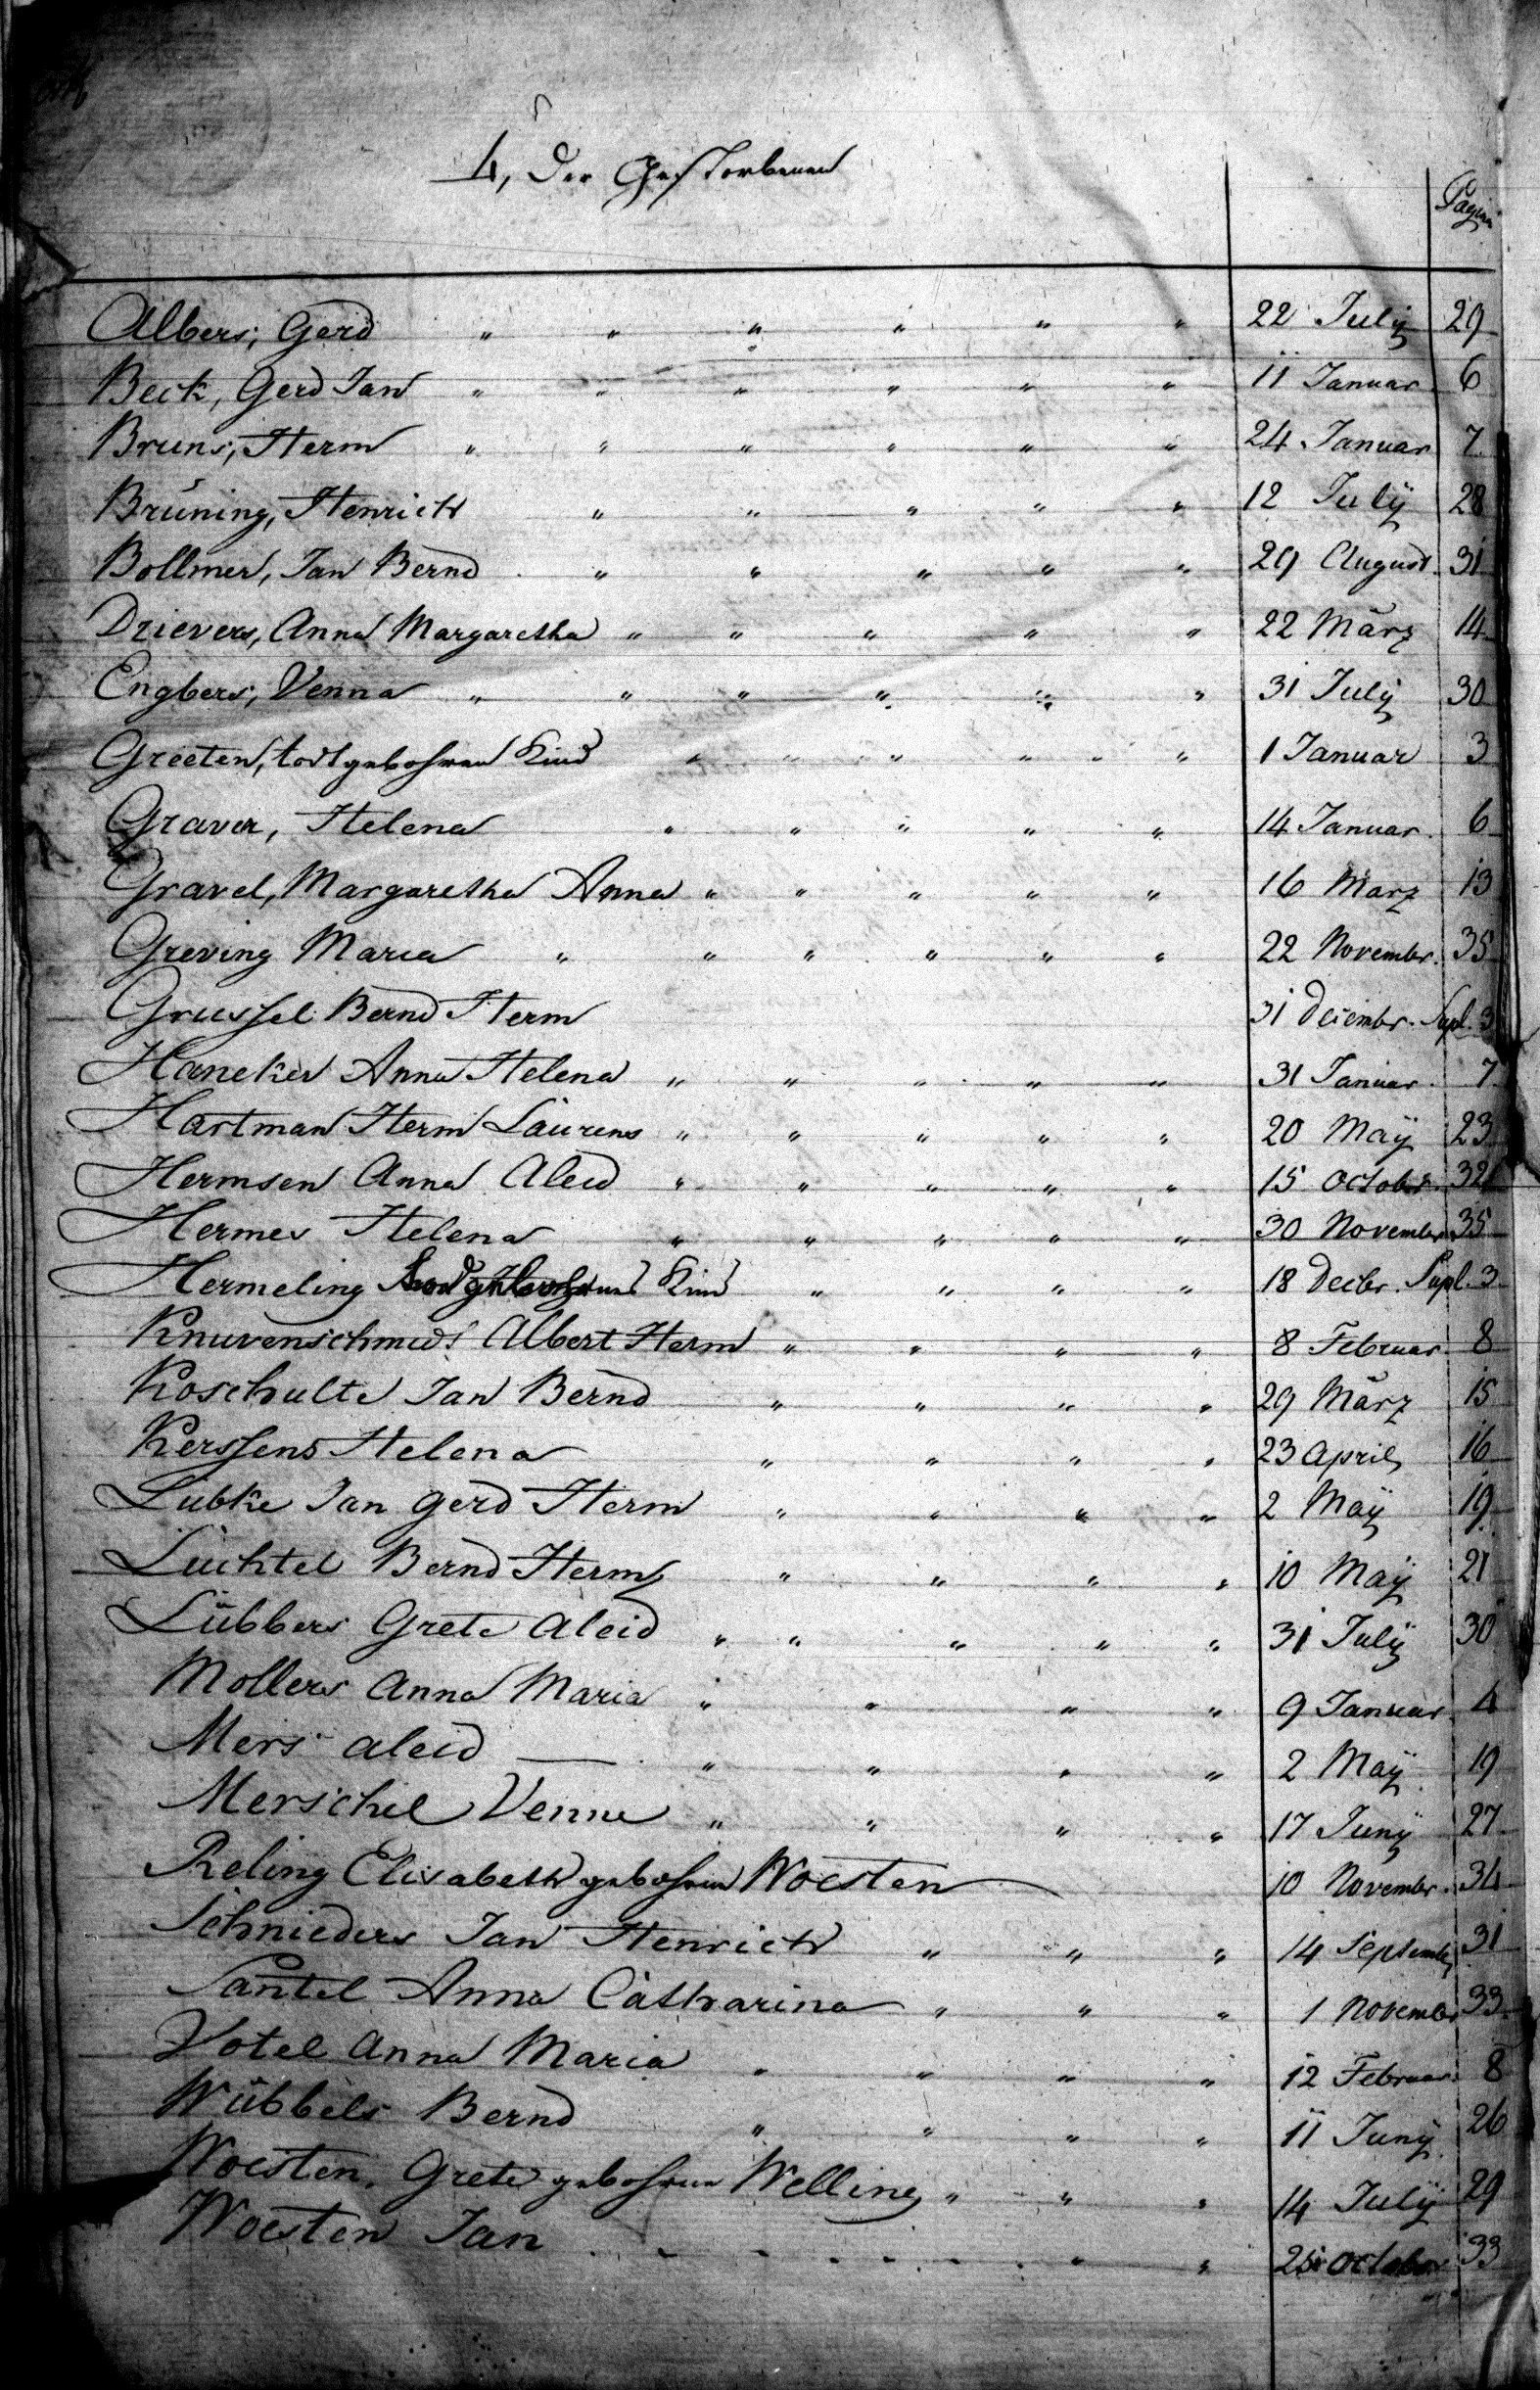 4, Der Gestorbenen
Pagina
Albers, Gerd " " " " " " 22 July 29
Beck, Gerd Jan " " " " " " 11 Januar 6
Bruns, Herm " " " " " " 24 Januar 7
Brüning, Henrich " " " " " 12 July 28
Bollmer, Jan Bernd " " " " " 29 August 31
Drievers, Anna Margaretha " " " " " 22 März 14
Engbers, Venna " " " " " " 31 July 30
Greeten, todtgebohrnes Kind " " " " " 1 Januar 3
Graver, Helena " " " " " 14 Januar 6
Gravel, Margaretha Anna " " " " " 16 März 13
Greving Maria " " " " " " 22 Novembr. 35
Grussel Bernd Herm 31 Decembr. Supl. 3
Haneker Anna Helena " " " " " 31 Januar 7
Hartman Herm Laurens " " " " " 20 May 23
Hermsen Anna Aleid " " " " " 15 October 32
Hermes Helena " " " " " 30 November 35
Hermeling Kind " " " " 18 Decbr. Supl. 3
Knuvenschmidt Albert Herm " " " " 8 Februar 8
Koschulte Jan Bernd " " " " 29 März 15
Kerssens Helena " " " " 23 April 16
Lubke Jan Gerd Herm " " " " 2 May 19
Luchtel Bernd Herm " " " " 10 May 21
Lübbers Grete Aleid " " " " " 31 July 30
Mollers Anna Maria " " " " 9 Januar 4
Mers Aleid " " " " 2 May 19
Merschel Venne " " " " 17 Juny 27
Reling Elisabeth gebohrne Woesten 10 Novembr. 34
Schnieders Jan Henrich " " " 14 September 31
Santel Anna Catharina " " " 1 Novembr 33
Votel Anna Maria " " " " 12 Februar 8
Wübbels Bernd " " " " 11 Juny 26
Woesten, Grete gebohrne Welling " " " 14 July 29
Woesten Jan " " October 33